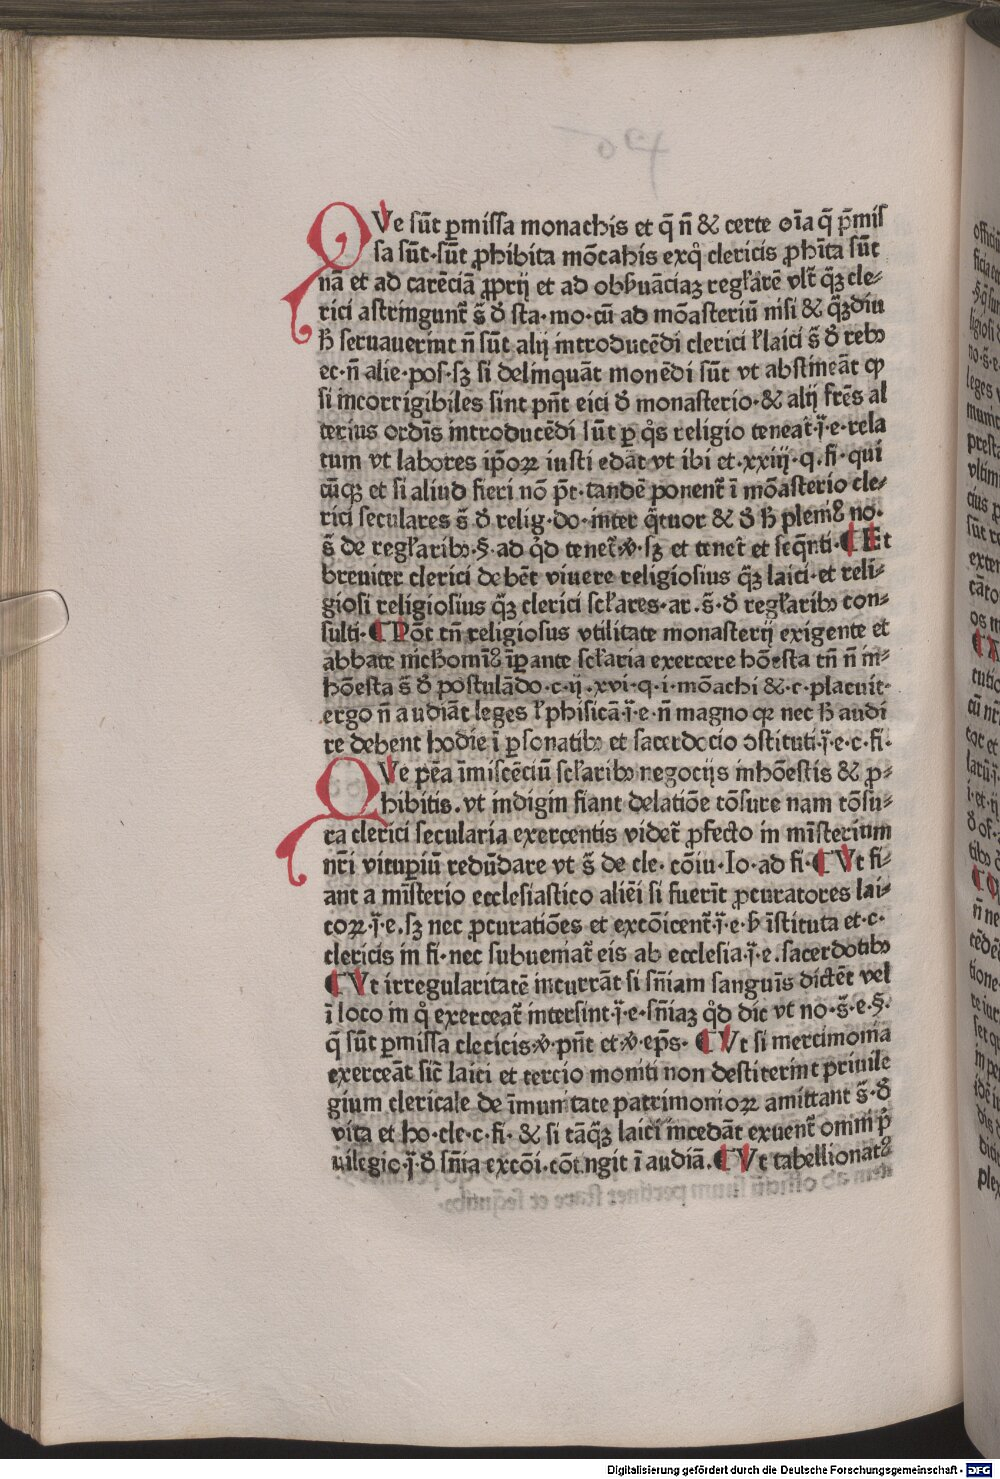 QVe sūt ꝑmissa monachis et q̄ n̄ & certe oīa q̄ p̄mis
sa sūt·sūt ꝓhibita mōcahis exq̊ clericis ꝓhīta sūt
nā et ad carēciā ꝓprij et ad obẜuāciaꝫ regl̓arē vlt̄ q̄ꝫ cle⸗
rici astringunt᷑ s̄ ð sta·mo·cū ad mōasteriū nisi & q̄ꝫdiu
ẖ seruauerint n̄ sūt alij introducēdi clerici l̓laici s̄ ð rebꝰ
ec·n̄ alie·pos·sꝫ si delinquāt monēdi sūt vt abstineāt ꝙ
si incorrigibiles sint pn̄t eici ð monasterio·& alij frēs al
terius ordīs introducēdi sūt ꝑ q̊s religio teneat᷑·j̄·e·rela
tum vt labores ip̄oꝝ iusti edāt vt ibi et·xxiij·q·fi·qui
cūqꝫ et si aliud fieri nō p̄t·tandē ponent᷑ ī mōasterio cle⸗
rici seculares s̄ ð relig·do·inter q̄tuor & ð ẖ pleniꝰ no·
s̄ de regl̓aribꝰ·§·ad q̊d tenet᷑·ꝟ·sꝫ et tenet᷑ et seq̄nti·¶Et
breuiter clerici debēt viuere religiosius q̄ꝫ laici·et reli⸗
giosi religiosius q̄ꝫ clerici scl̓ares·ar·s̄·ð regl̓aribꝰ con⸗
sulti·¶Pōt tn̄ religiosus vtilitate monasterij exigente et
abbate nichomīꝰ īꝑante scl̓aria exercere hōesta tn̄ n̄ in⸗
hōesta s̄ ð postulādo·c·ij·xvi·q·i·mōachi &·c·placuit·
ergo n̄ audiāt leges l̓phisicā·j̄·e·n̄ magno qꝛ nec ẖ audi
re debent hodie ī ꝑsonatibꝰ et sacerdocio ↄstituti·j̄·e·c·fi·
QVe pēa īmiscēciū scl̓aribꝰ negocijs inhōestis & ꝓ⸗
hibitis·vt indigin fiant delatiōe tōsure nam tōsu⸗
ra clerici secularia exercentis videt᷑ ꝓfecto in mīsterium
nr̄i vituꝑiū redūdare vt s̄ de cle·cōiu·Io·ad fi·¶Vt fi⸗
ant a mīsterio ecclesiastico aliēi si fuerīt ꝓcuratores lai⸗
coꝝ·j̄·e·sꝫ nec ꝓcuratiōes et excōicent᷑·j̄·e·ẖ īstituta et·c·
clericis in fi·nec subueniat᷑ eis ab ecclesia·j̄·e·sacerdotibꝰ
¶Vt irregularitatē incurrāt si sn̄iam sanguīs dictēt vel
ī loco in q̊ exerceat᷑ intersint·j̄·e·sn̄iaꝫ q̊d dic vt no·s̄·e·§·
q̄ sūt ꝑmissa clecicis·ꝟ·pn̄t et·ꝟ·ep̄s·¶Vt si mercimonia
exerceāt sic̄ laici et tercio moniti non destiterint priuile
gium clericale de īmunitate patrimonioꝝ amittant s̄·ð
vita et ho·cle·c·fi·& si tāq̄ꝫ laici incedāt exuent᷑ omni p̄
uilegio·j̄·ð sn̄ia excōi·cōtingit ī audiā·¶Vt tabellionatꝰ
Digitalisierung gefördert durch die Deutsche Forschungsgemeinschaft - DFG